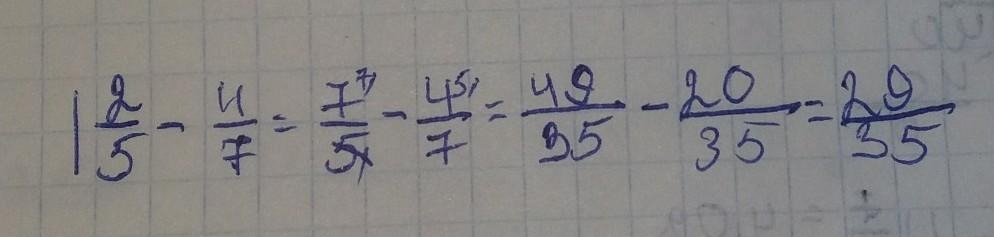 1 2/5 - 4/7 = 7⁷⁾/5 - 4⁵⁾/7 = 49/35 - 20/35 = 29/35